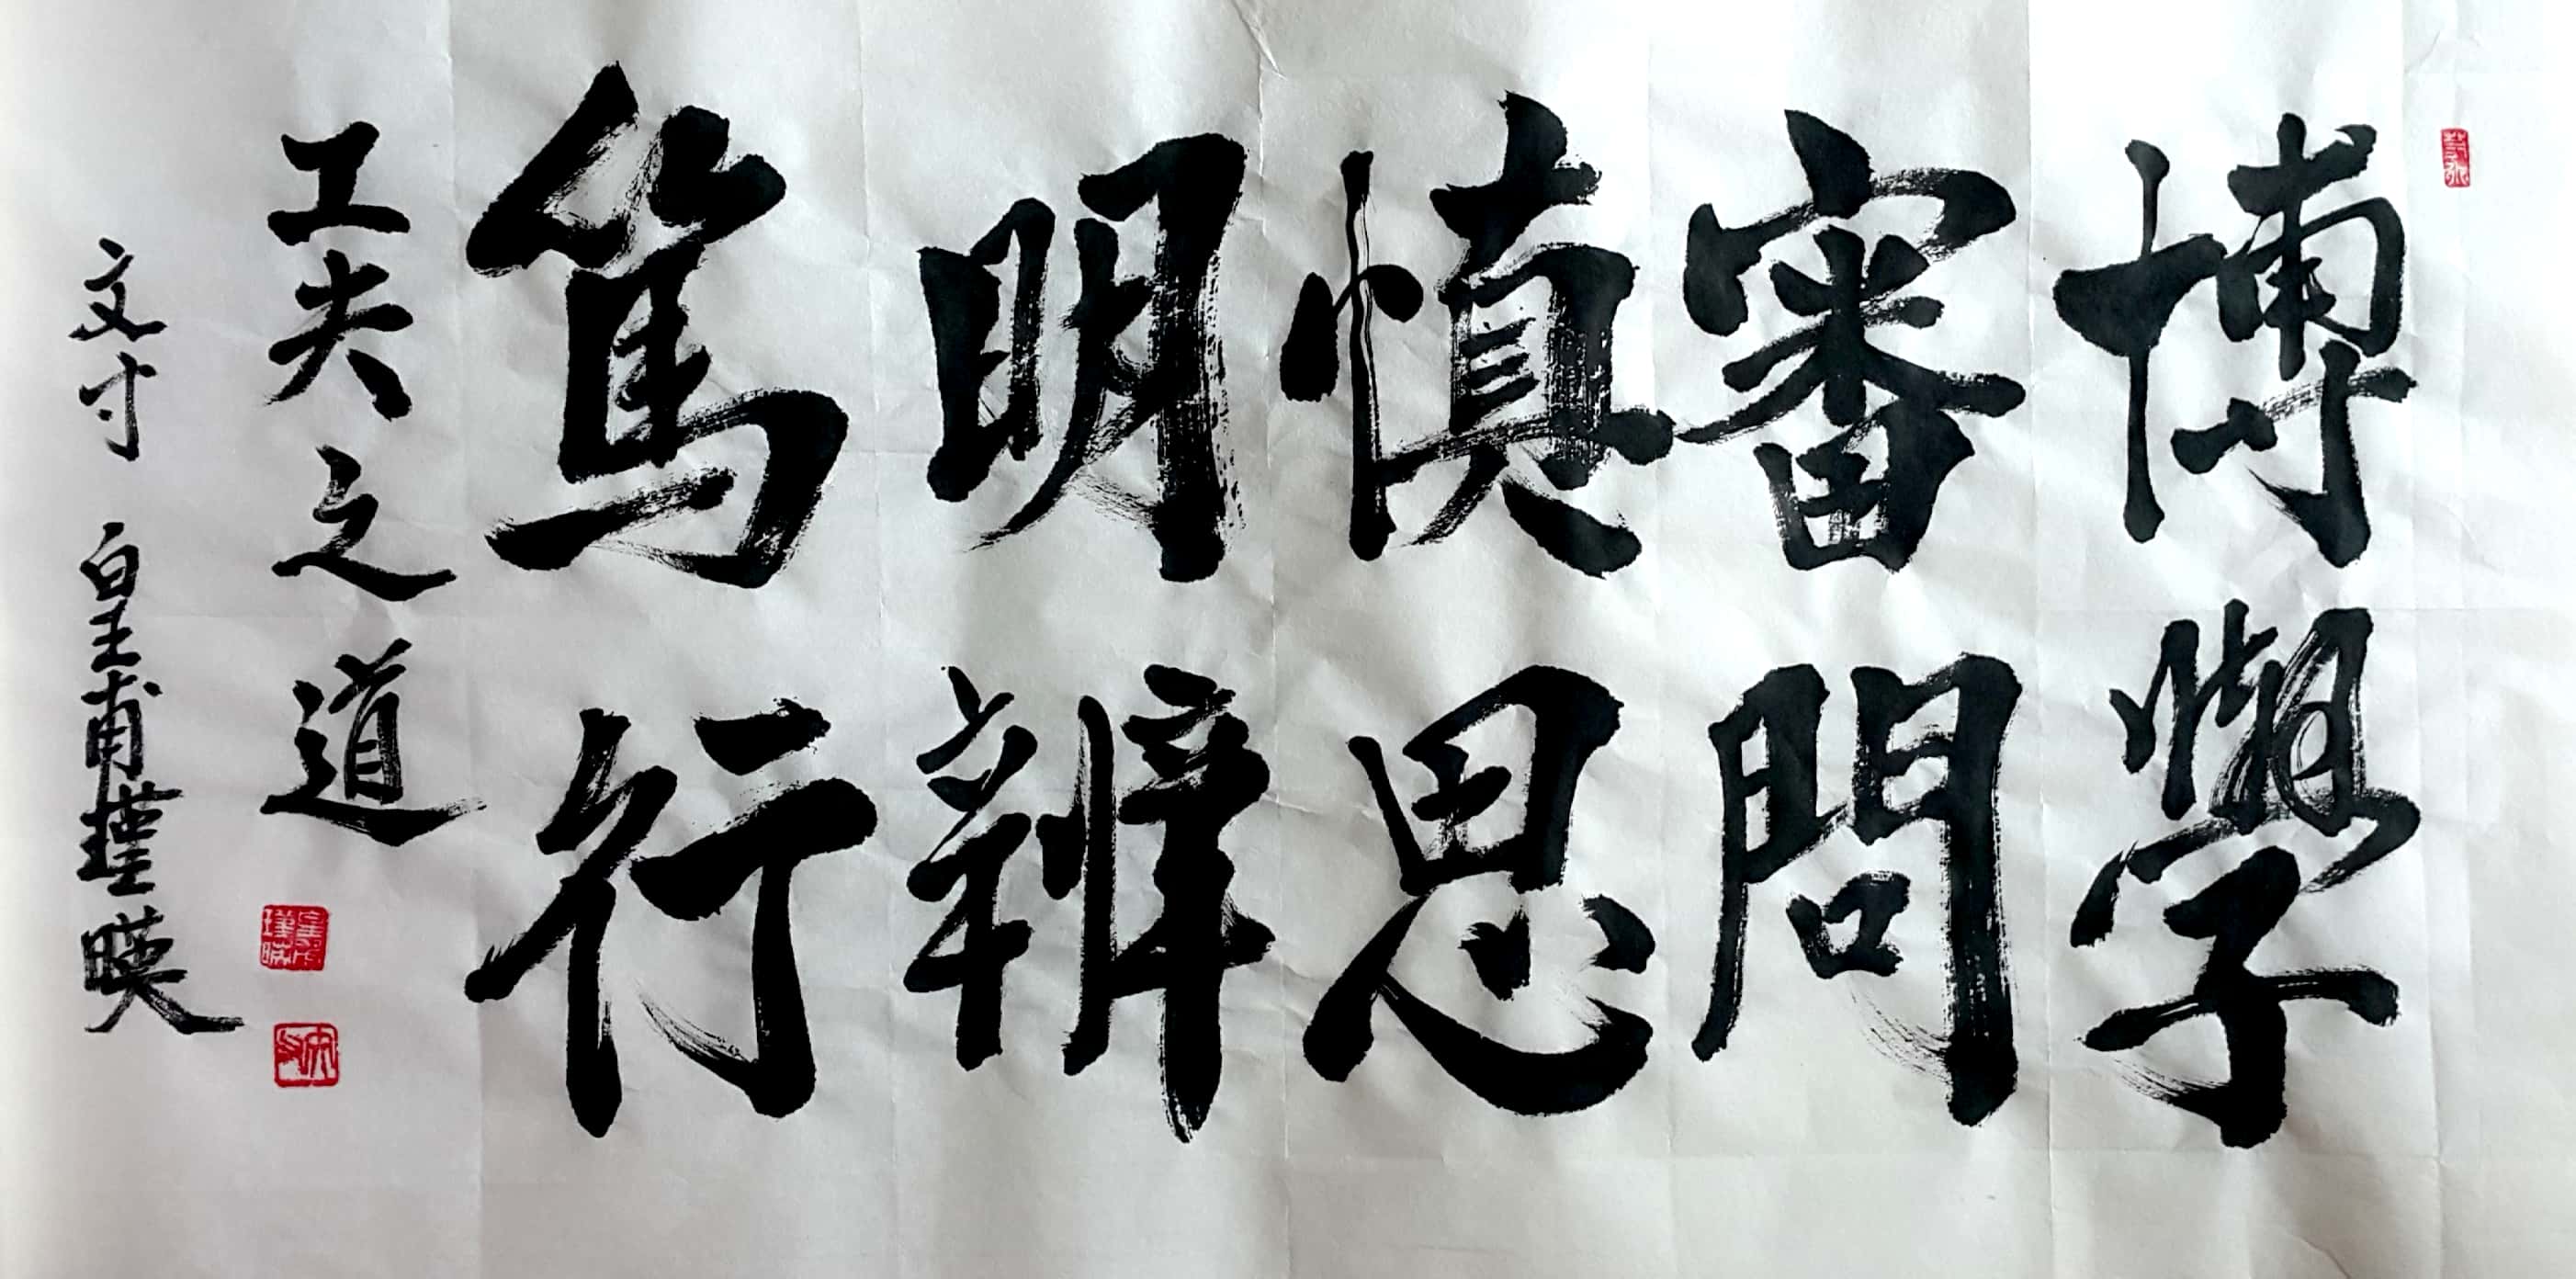 博學
審問
慎思
明辨
篤行
工夫之道
文寸 皇甫瑾暎